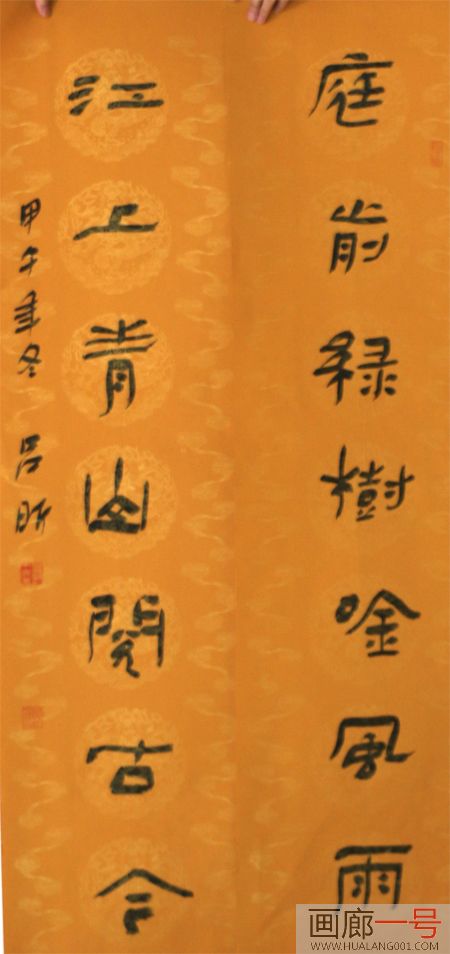 庭前綠樹唫風雨
江上青山閱古今
甲午年冬 吕昕
画廊一号
WWW.HUALANG001.COM